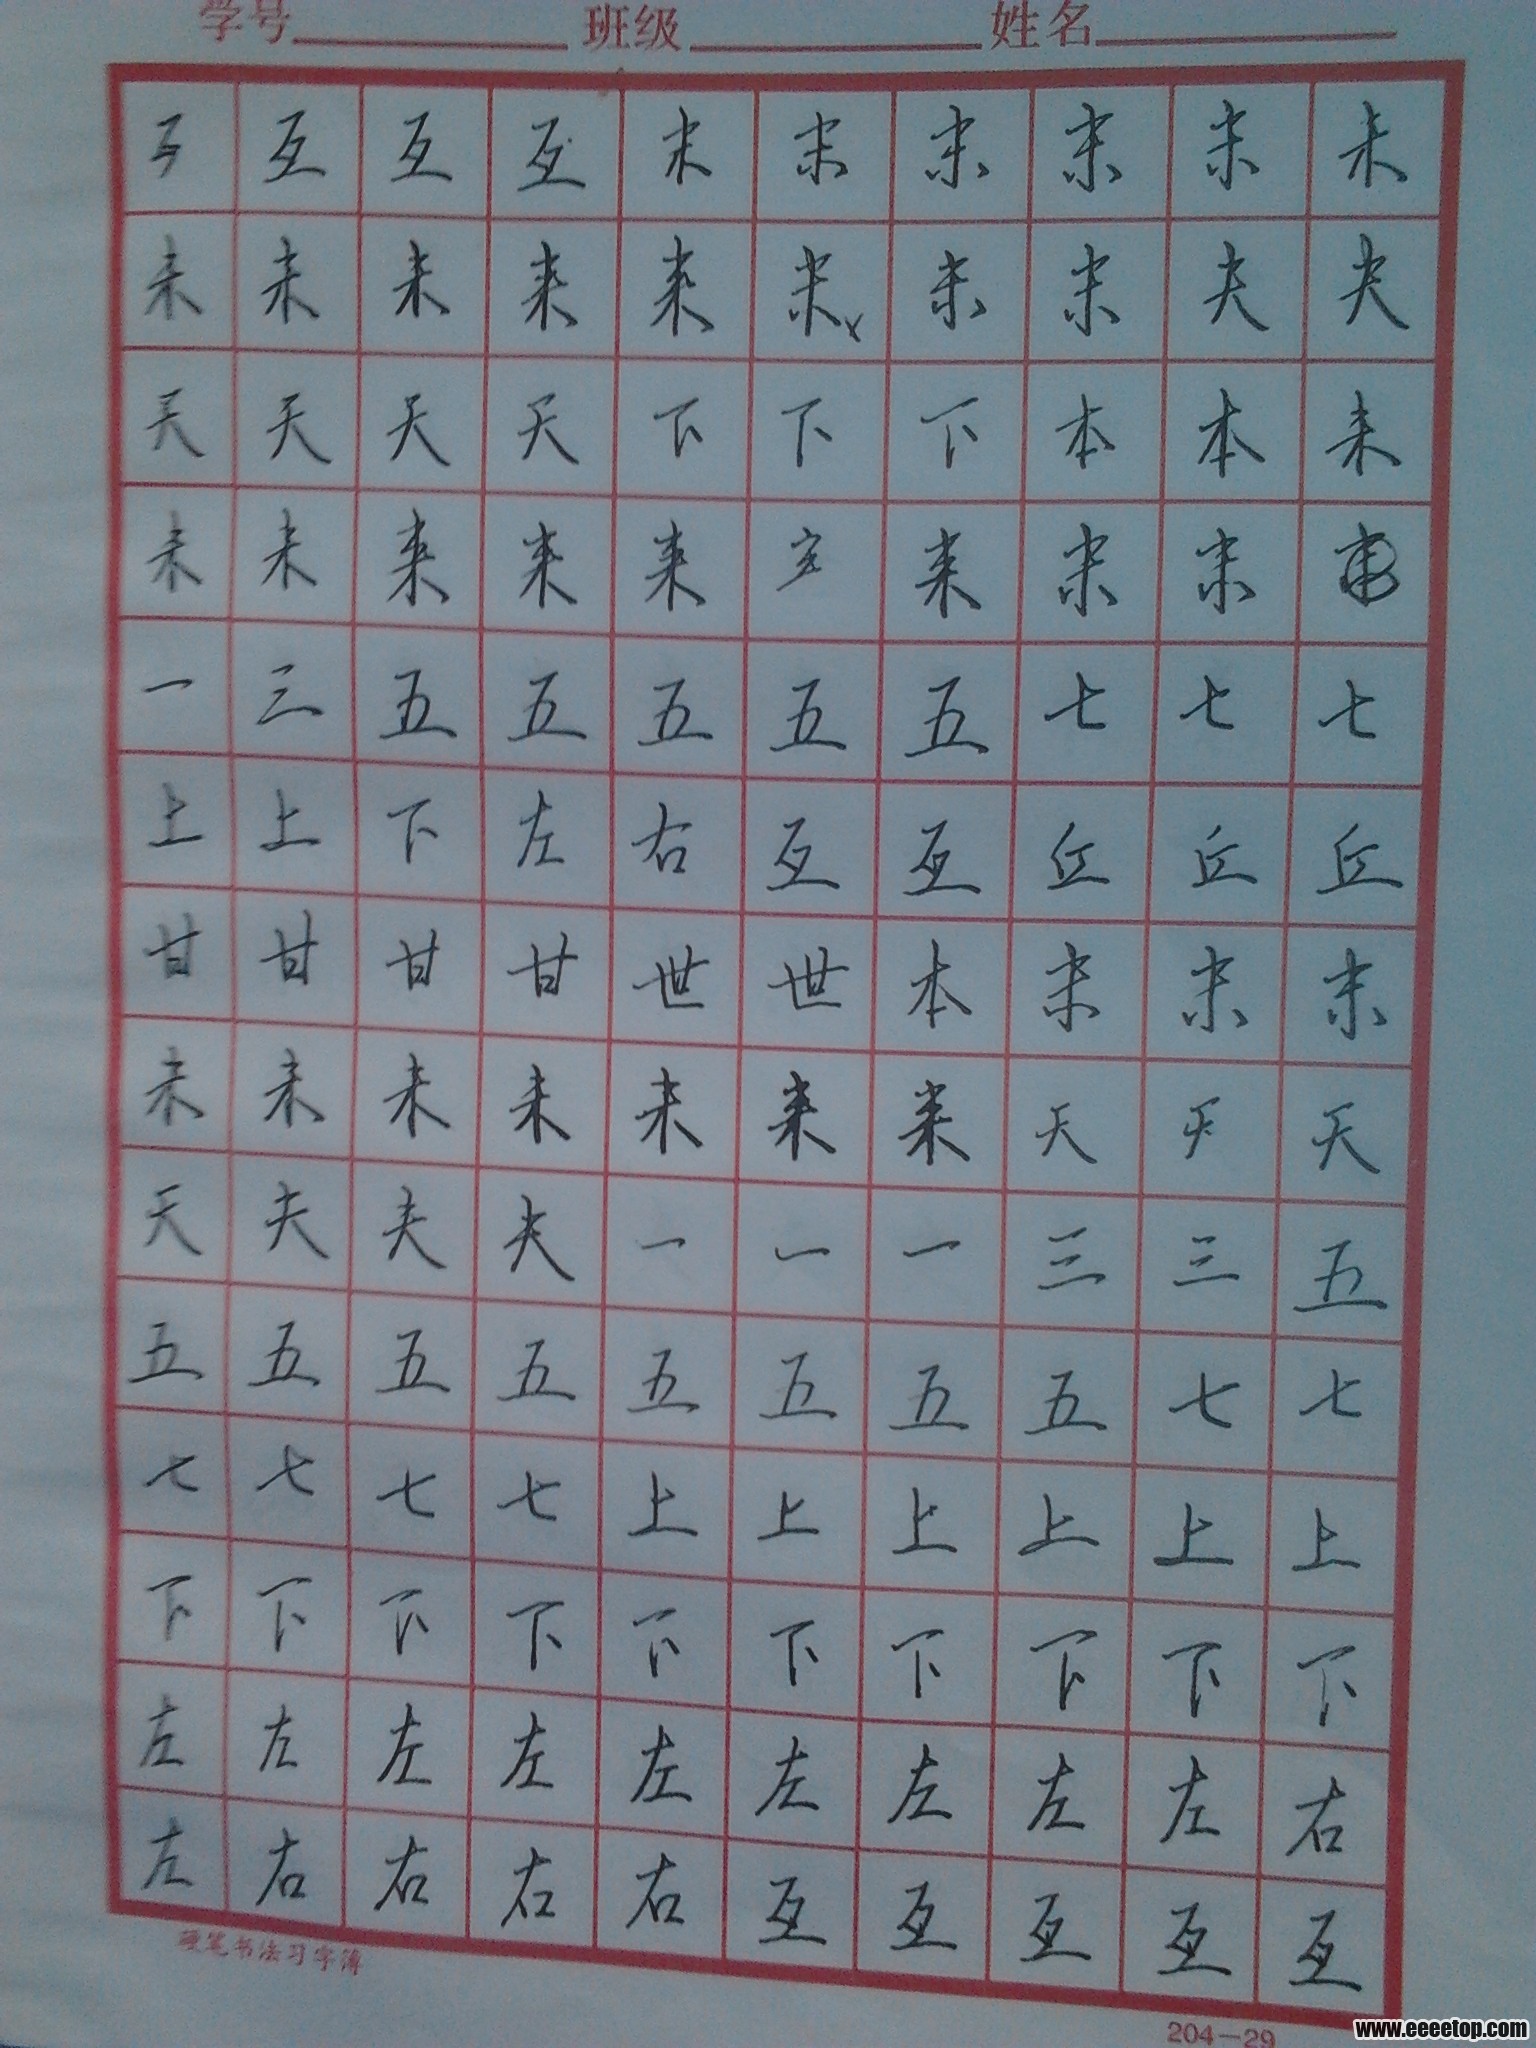 学号 班级 姓名
互 互 互 末 末 末 末 末 未
未 未 未 来 来 末 末 末 夫 夫
天 天 天 天 下 下 下 本 本 来
未 未 来 来 来 来 末 末
一 三 五 五 五 五 五 七 七 七
上 上 下 左 右 互 互 丘 丘 丘
甘 甘 甘 甘 世 世 本 末 末 末
未 未 未 未 未 来 来 天 天 天
天 夫 夫 夫 一 一 一 三 三 五
五 五 五 五 五 五 五 五 七 七
七 七 七 七 上 上 上 上 上 上
下 下 下 下 下 下 下 下 下 下
左 左 左 左 左 左 左 左 左 右
左 右 右 右 右 互 互 互 互 互
硬笔书法习字簿
204—29
www.eeeetop.com